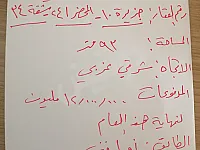 رقم العقار: جزيرة ١٠ - الخضرا ٢٤ شقة ٣٤
المساحة: ٩٣ متر
الاتجاه: شرقي غربي
المدفوعات ١٢,٠٠٠,٠٠٠ مليون
لنهاية هذا العام
الطابق: